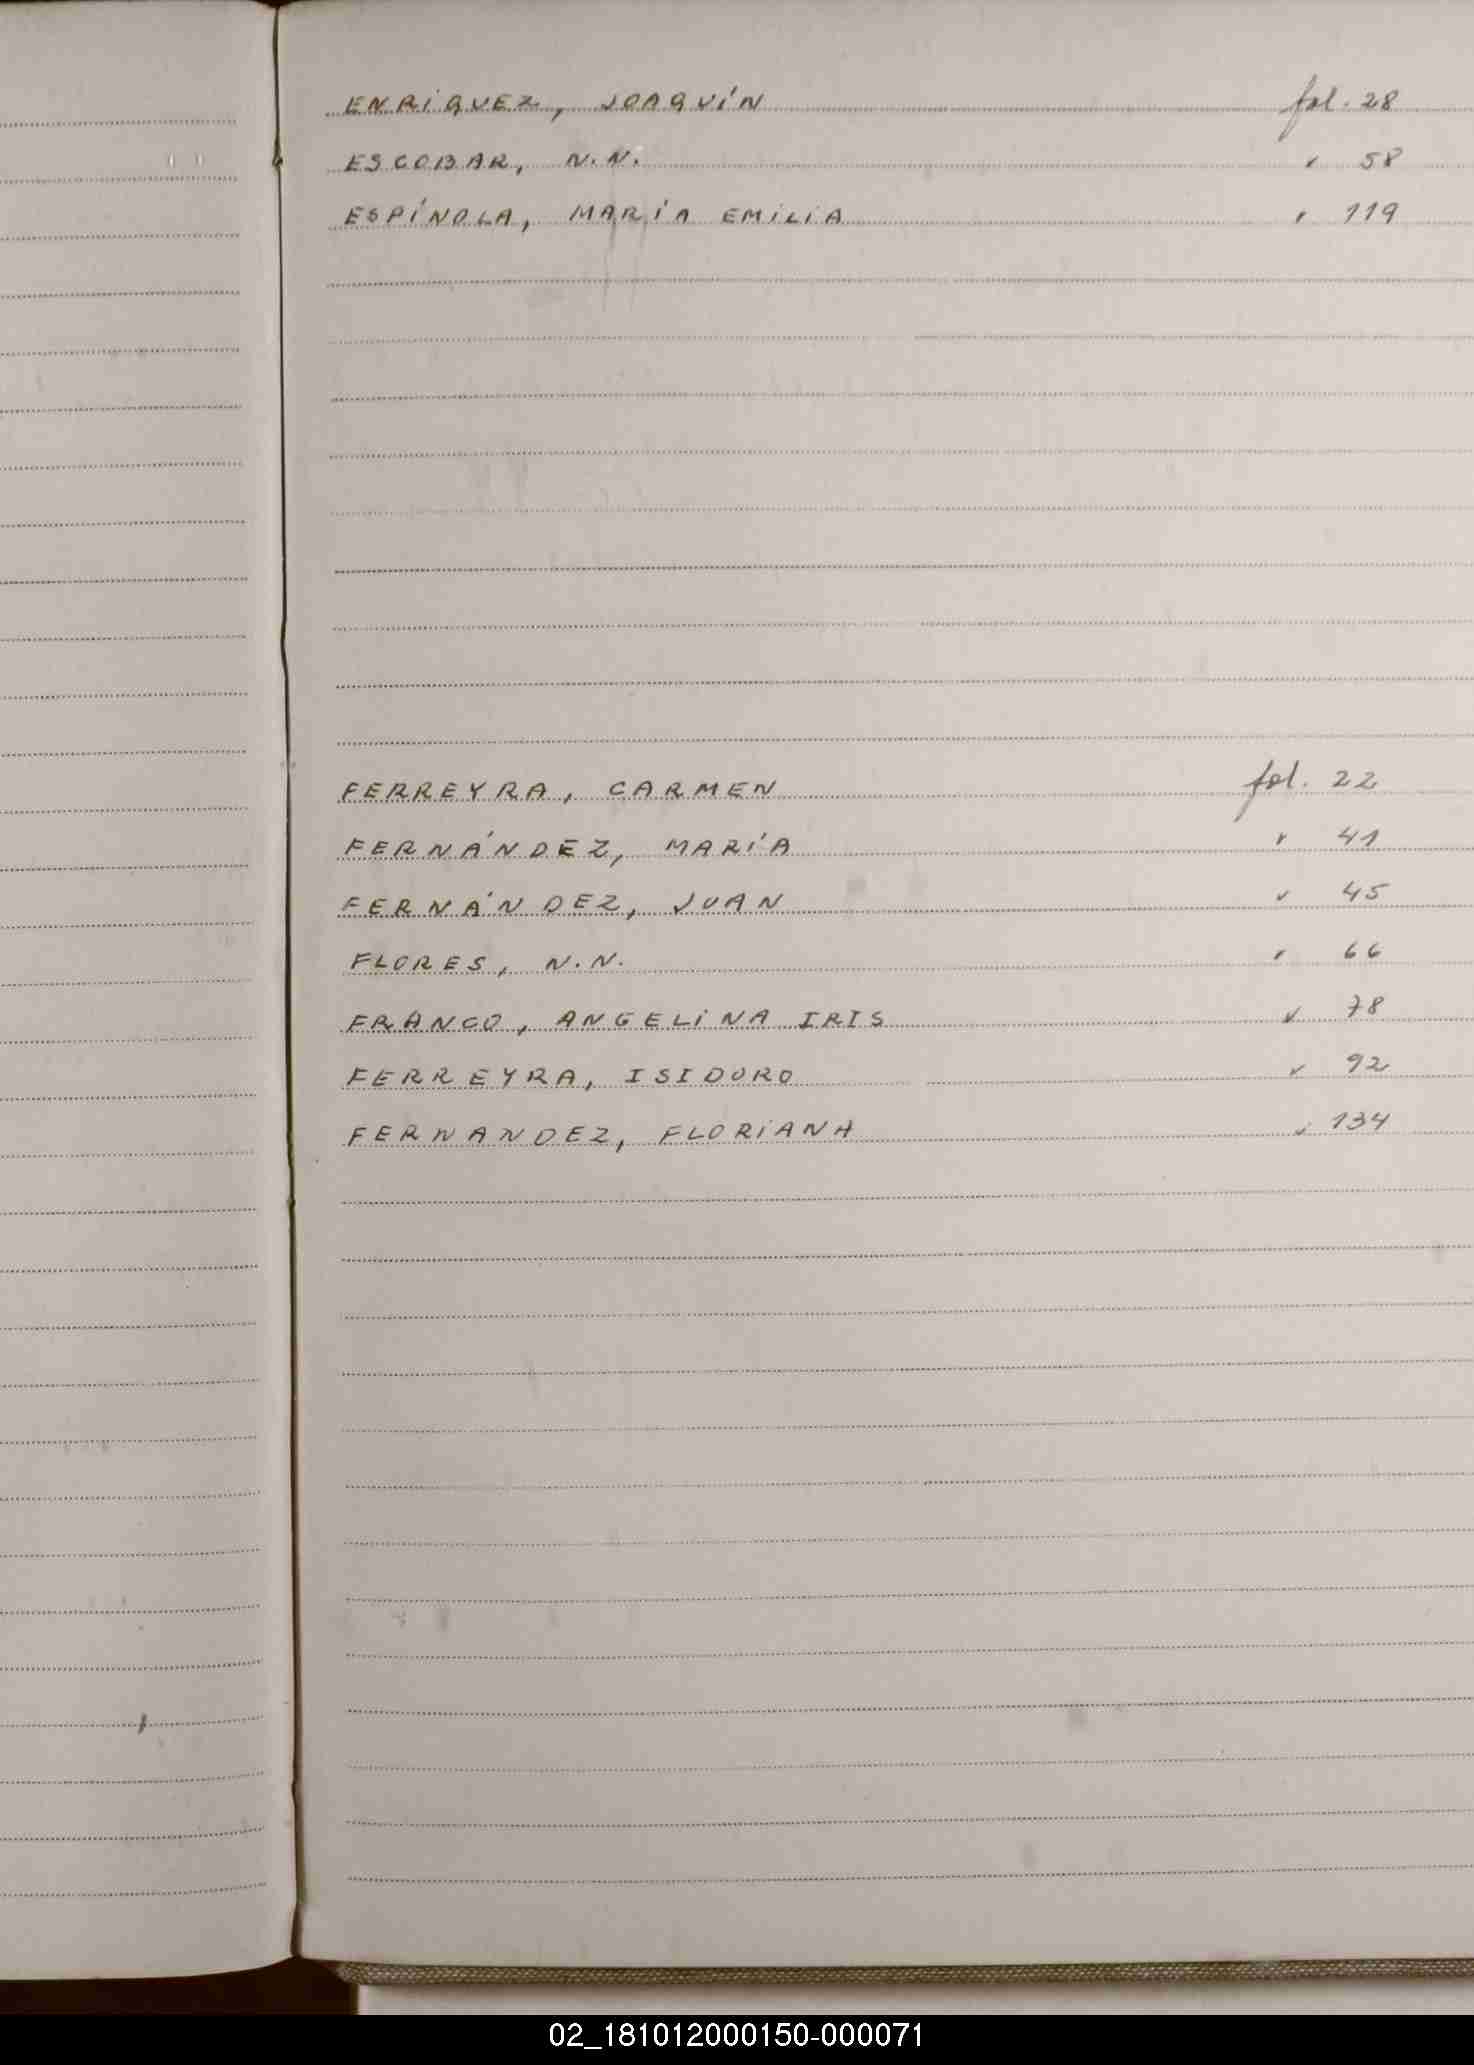 ENRIQUEZ, JOAQUÍN fol. 28
ESCOBAR, N.N. " 58
ESPÍNOLA, MARÍA EMILIA " 119
FERREYRA, CARMEN fol. 22
FERNÁNDEZ, MARÍA " 41
FERNÁNDEZ, JUAN " 45
FLORES, N.N. " 66
FRANCO, ANGELINA IRIS " 78
FERREYRA, ISIDORO " 92
FERNANDEZ, FLORIANA " 134
02_181012000150-000071